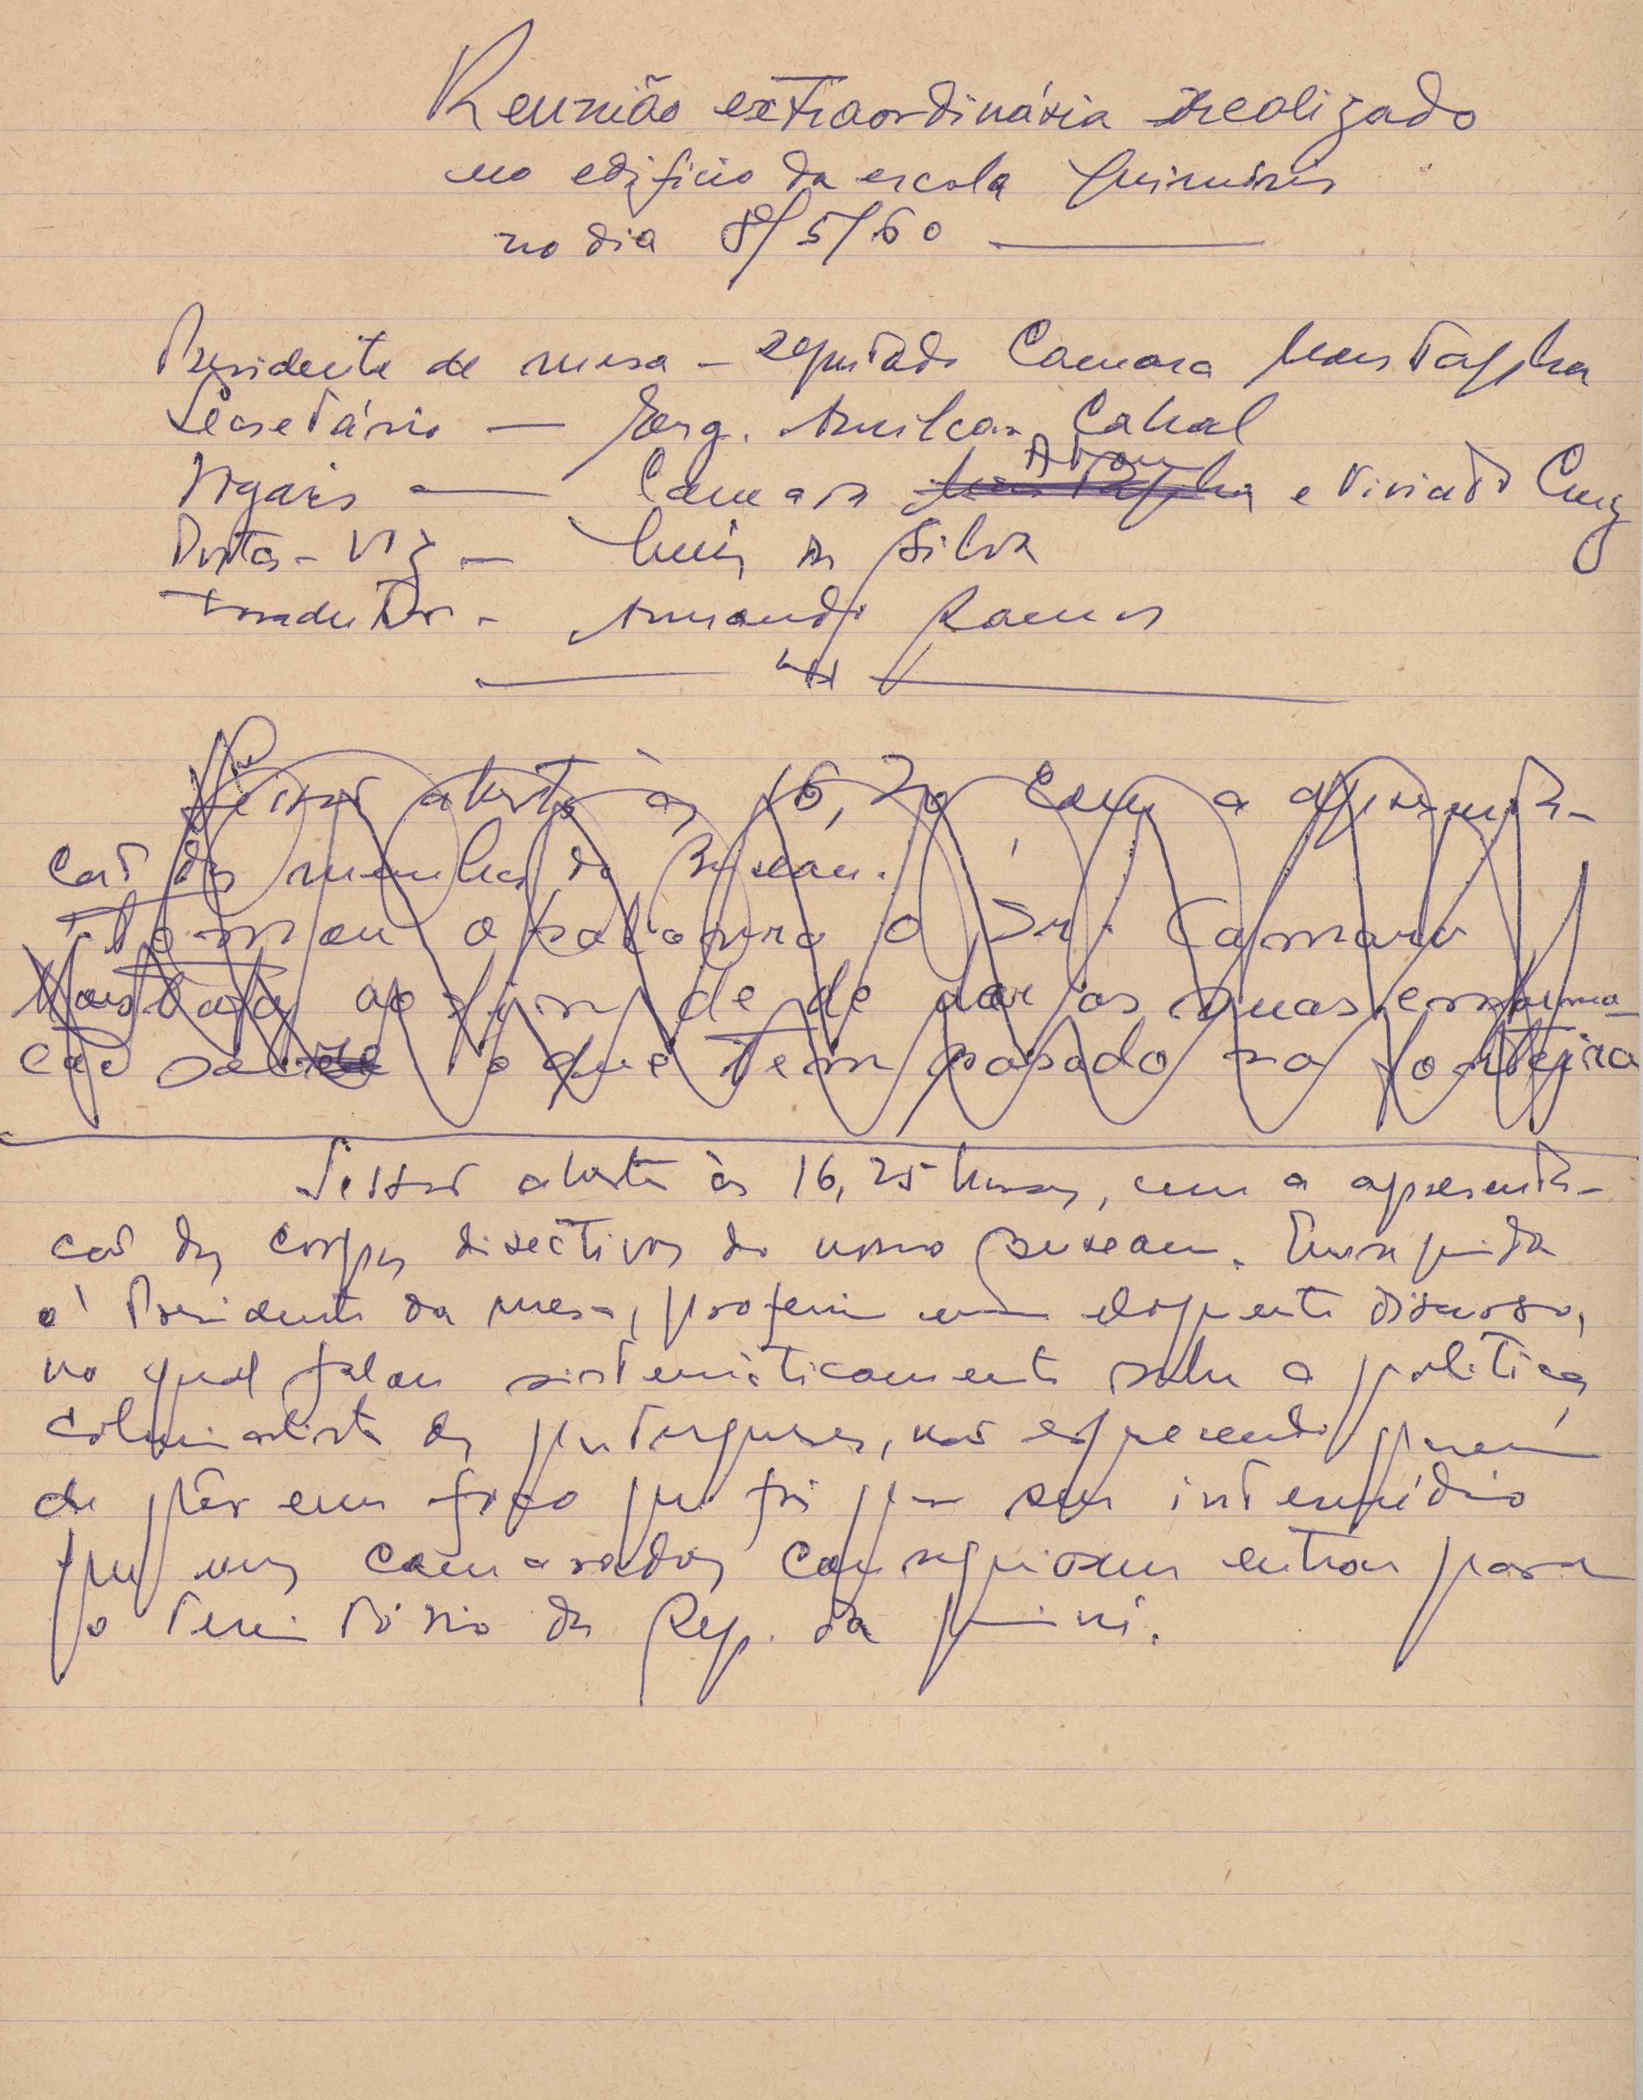 Reunião extraordinária realizado
no edifício da escola
no dia 8/5/60
Presidente de mesa - deputado Camara Moustapha
Secretário — Eng. Amilcar Cabral
Adam
Vogais — Camara Moustapha e Viriato Cruz
Porta-Voz — Luiz da Silva
Tradutor - Armando Ramos
Sessão aberta às 16,20, com a apresenta-
ção dos membros do Bureau.
Tomou a palavra o Sr. Camara
Moustafa ao fim de de dar as suas emforma
ção sobre o que tem pasado na fonteira
Sessão aberta às 16,25 horas, com a apresenta-
ção dos corpos directivos do nosso Bureau. Em seguida
o Presidente da mesa, proferiu um eloquente discurso,
no qual falou sistemáticamente sobre a política
colonialista dos portugueses, não esquecendo porém
de pôr em foco que foi por seu intermédio
que uns camaradas conseguiram entrar para
o território da Rep. da Guiné.